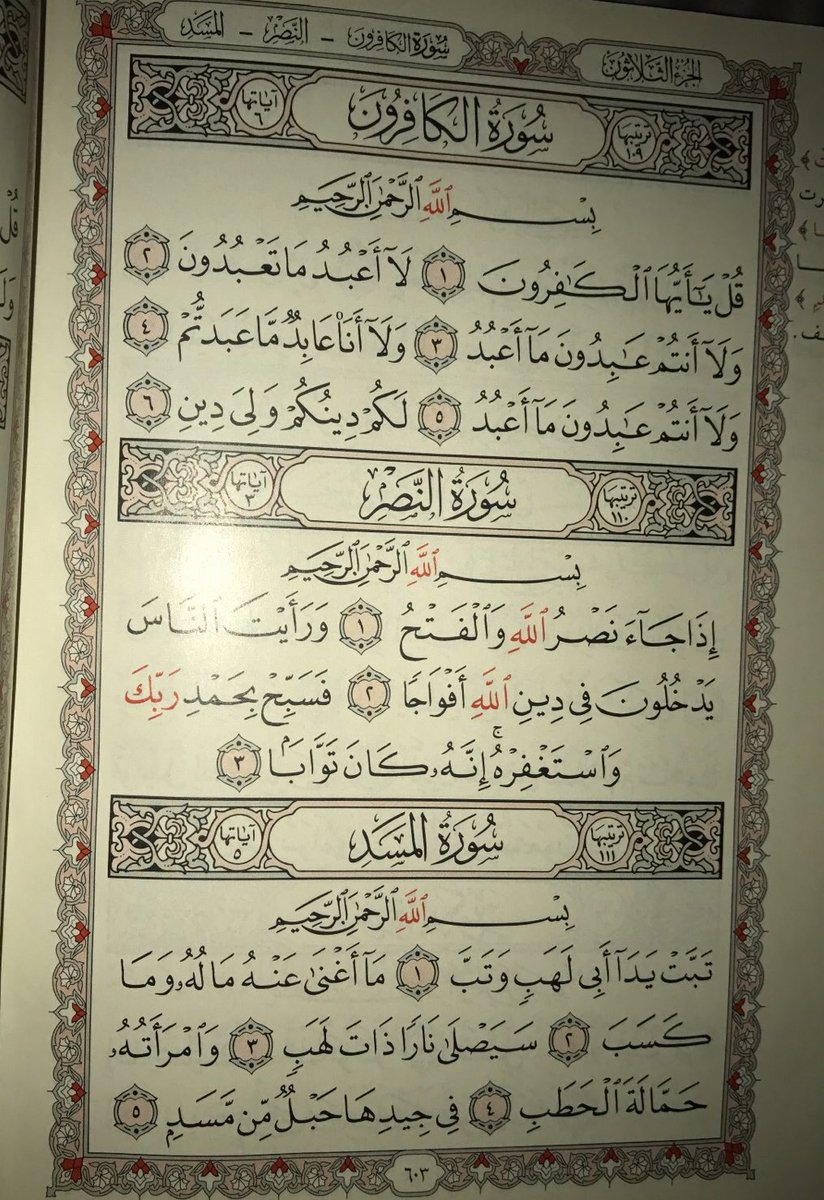 الجزء الثلاثون
سورة الكافرون - النصر - المسد
ترتيبها ١٠٩
سُورَةُ الكَافِرُونَ
آياتها ٦
بِسْمِ ٱللَّهِ ٱلرَّحْمَٰنِ ٱلرَّحِيمِ
قُلْ يَٰٓأَيُّهَا ٱلْكَٰفِرُونَ ١ لَآ أَعْبُدُ مَا تَعْبُدُونَ ٢
وَلَآ أَنتُمْ عَٰبِدُونَ مَآ أَعْبُدُ ٣ وَلَآ أَنَا۠ عَابِدٌ مَّا عَبَدتُّمْ ٤
وَلَآ أَنتُمْ عَٰبِدُونَ مَآ أَعْبُدُ ٥ لَكُمْ دِينُكُمْ وَلِىَ دِينِ ٦
ترتيبها ١١٠
سُورَةُ النَّصْرِ
آياتها ٣
بِسْمِ ٱللَّهِ ٱلرَّحْمَٰنِ ٱلرَّحِيمِ
إِذَا جَآءَ نَصْرُ ٱللَّهِ وَٱلْفَتْحُ ١ وَرَأَيْتَ ٱلنَّاسَ
يَدْخُلُونَ فِى دِينِ ٱللَّهِ أَفْوَاجًا ٢ فَسَبِّحْ بِحَمْدِ رَبِّكَ
وَٱسْتَغْفِرْهُ ۚ إِنَّهُۥ كَانَ تَوَّابَۢا ٣
ترتيبها ١١١
سُورَةُ المَسَدِ
آياتها ٥
بِسْمِ ٱللَّهِ ٱلرَّحْمَٰنِ ٱلرَّحِيمِ
تَبَّتْ يَدَآ أَبِى لَهَبٍ وَتَبَّ ١ مَآ أَغْنَىٰ عَنْهُ مَالُهُۥ وَمَا
كَسَبَ ٢ سَيَصْلَىٰ نَارًا ذَاتَ لَهَبٍ ٣ وَٱمْرَأَتُهُۥ
حَمَّالَةَ ٱلْحَطَبِ ٤ فِى جِيدِهَا حَبْلٌ مِّن مَّسَدٍۭ ٥
٦٠٣